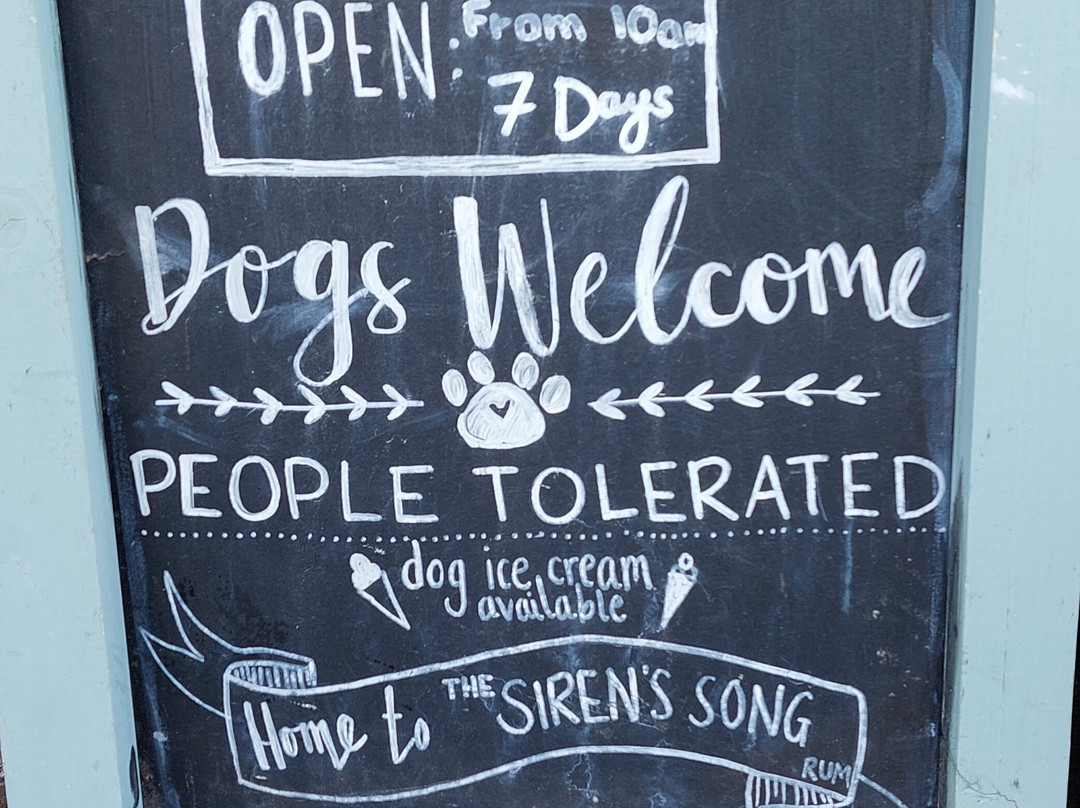 OPEN: From 10am
7 Days
Dogs Welcome
PEOPLE TOLERATED
dog ice cream
available
Home to THE SIREN'S SONG
RUM